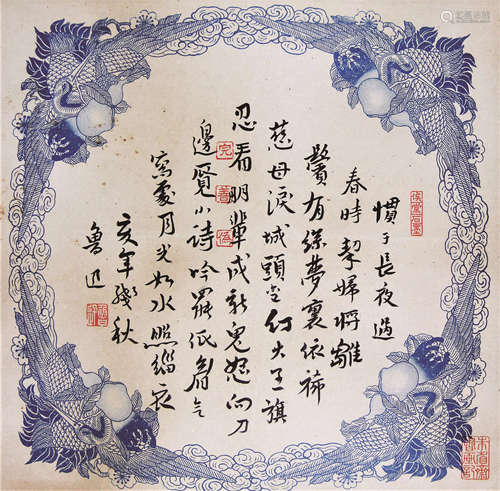 慣于長夜過
春時挈婦將雛
鬢有絲夢裏依稀
慈母淚城頭变幻大王旗
忍看朋輩成新鬼怒向刀
邊覓小詩吟罷低眉无
寫處月光如水照緇衣
亥年殘秋
魯迅